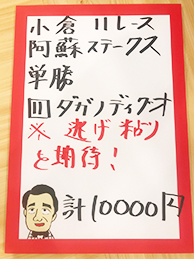 小倉11レース
阿蘇ステークス
単勝
⑪ダガノディグオ
※逃げ粘り
を期待！
計10000円